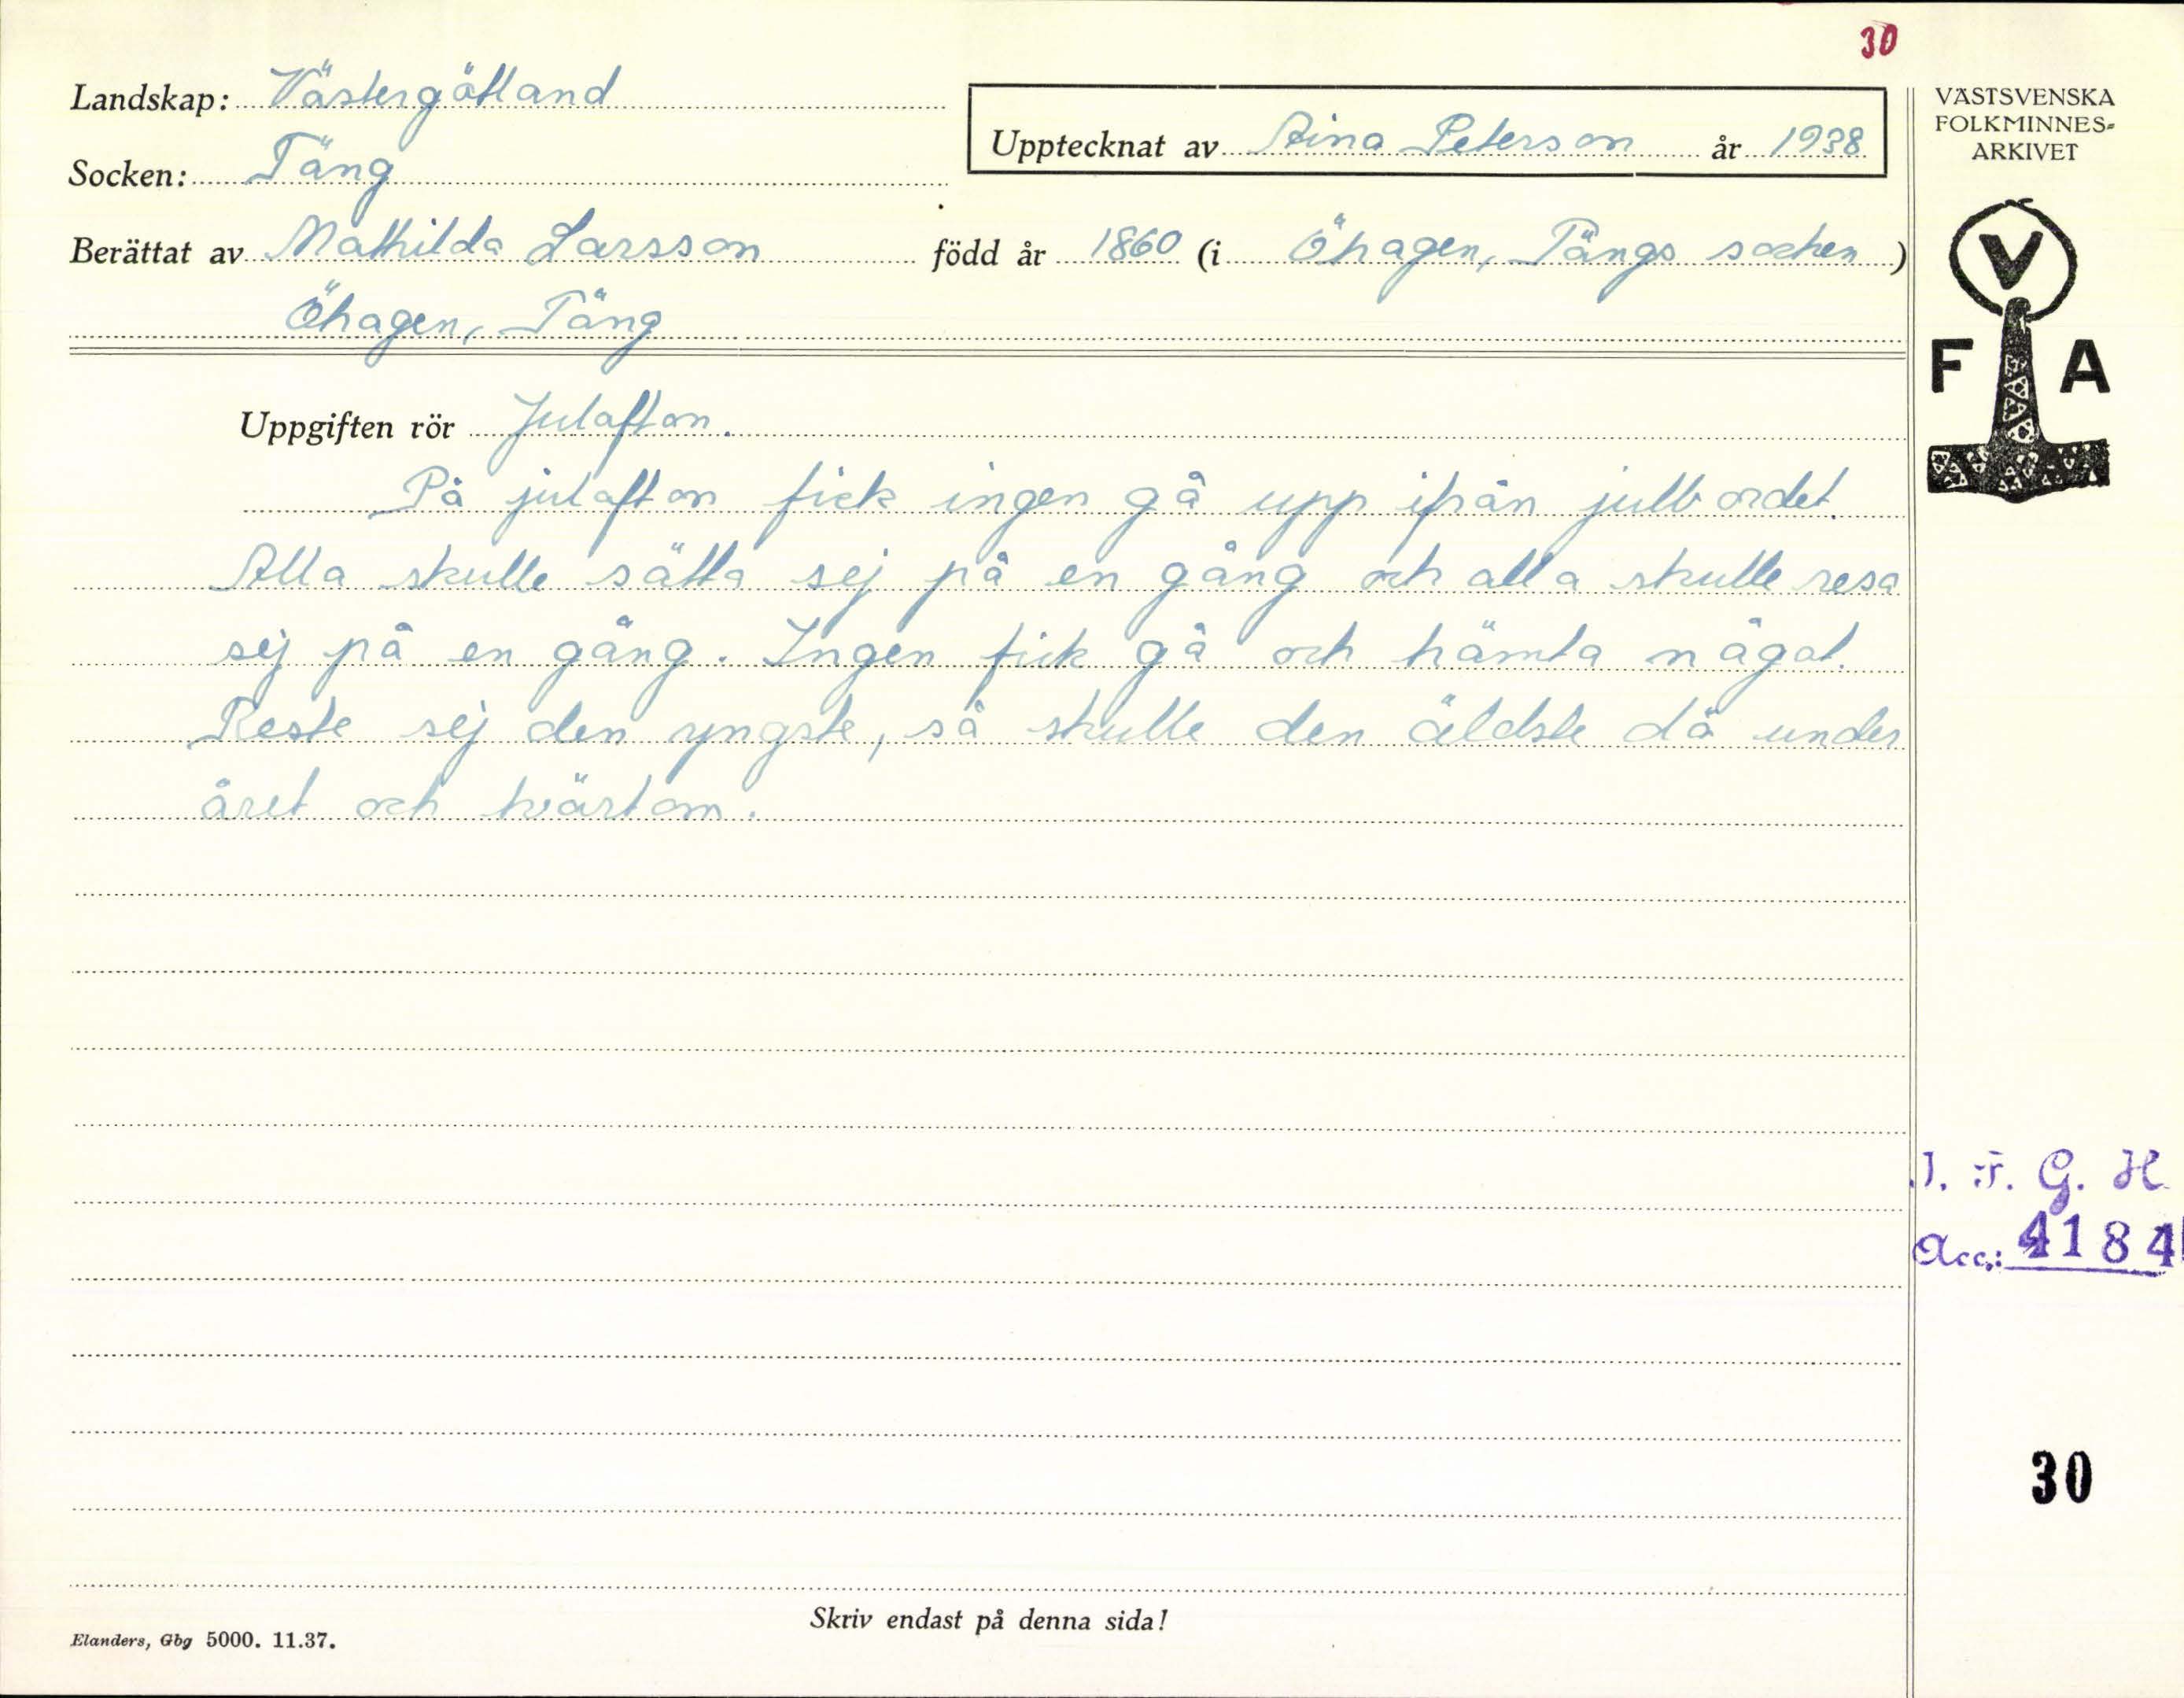 30
Landskap: Västergötland
Upptecknat av Aina Peterson år 1938
VÄSTSVENSKA
FOLKMINNES-
ARKIVET
Socken: Täng
Berättat av Mathilda Larsson född år 1860 (i Öhagen, Tängs socken)
Öhagen, Täng
V
F A
Uppgiften rör Julafton.
På julafton fick ingen gå upp ifrån julbordet.
Alla skulle sätta sej på en gång och alla skulle resa
sej på en gång. Ingen fick gå och hämta något.
Reste sej den yngste, så skulle den äldste dö under
året och tvärtom.
I. F. G. H.
Acc.: 4184
30
Skriv endast på denna sida!
Elanders, Gbg 5000. 11.37.